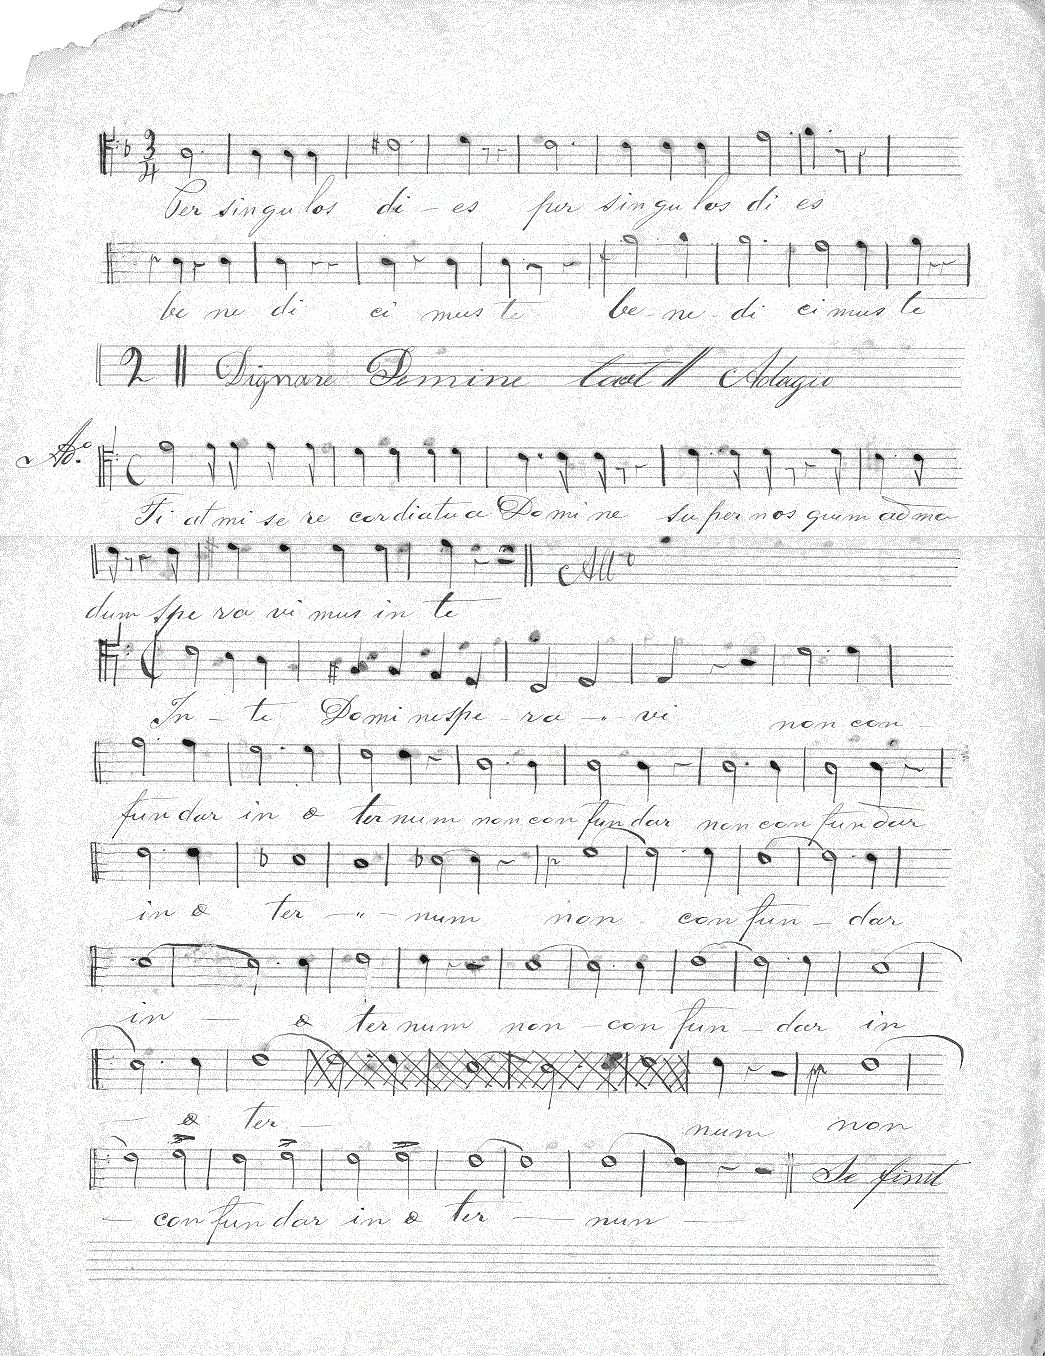 3/4
Per singulos di - es per singulos di es
be ne di ci mus te be - ne - di ci mus te
2 || Dignare Domine tacet || Adagio
Ad.o
Fi at mi se re cordia tu a Domine super nos quem ad mo
dum spe ra vi mus in te All.o
In - te Domine spe - ra - " - vi non con -
fun dar in æ ter num non con fun dar non con fun dar
in æ ter - " - num non con fun - dar
in - æ ter num non - con fun - dar in
- æ ter - num non
- con fun dar in æ ter - nun - Se finit